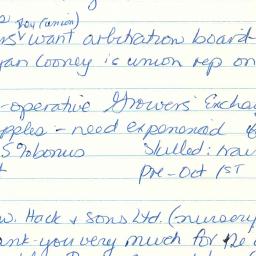 Boy (union)
want arbitration board
yan Cooney is union rep on
-operative Growers' Excha
pples - need experienced
5% bonus Skilled:
Pre-Oct 1ST
W. Hack & Sons Ltd. (nursery
ank-you very much for the